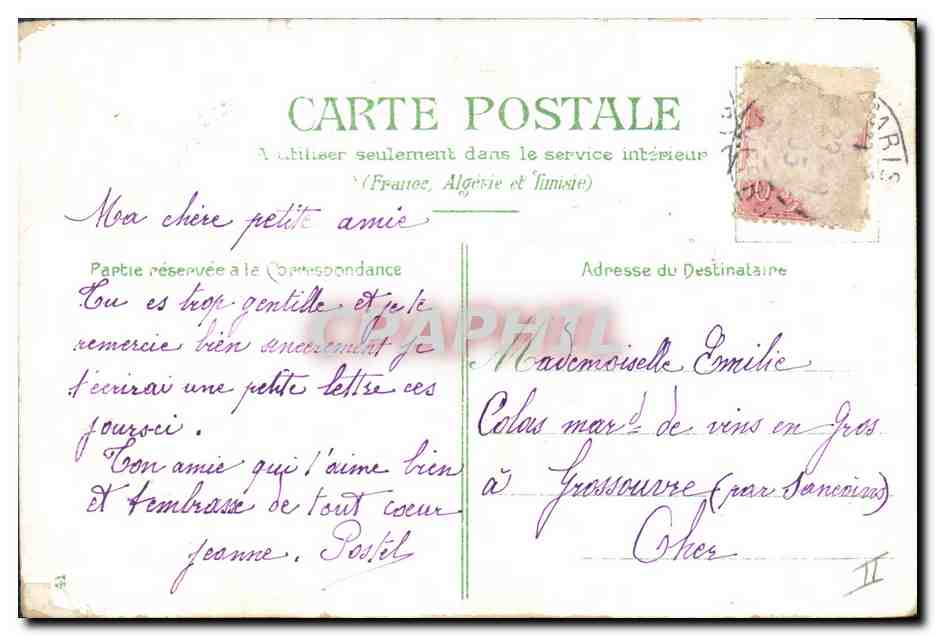 CARTE POSTALE
A utiliser seulement dans le service intérieur
(France, Algérie et Tunisie)
PARIS
Ma chère petite amie
Partie réservée a la Correspondance
Tu es trop gentille et je te
remercie bien sincèrement je
t'écrirai une petite lettre ces
jours ci.
Ton amie qui t'aime bien
et t'embrasse de tout cœur
Jeanne. Postel
Adresse du Destinataire
Mademoiselle Emilie
Colas mard de vins en Gros
à Grossouvre (par Sancoins)
Cher
II
CPAPHIL